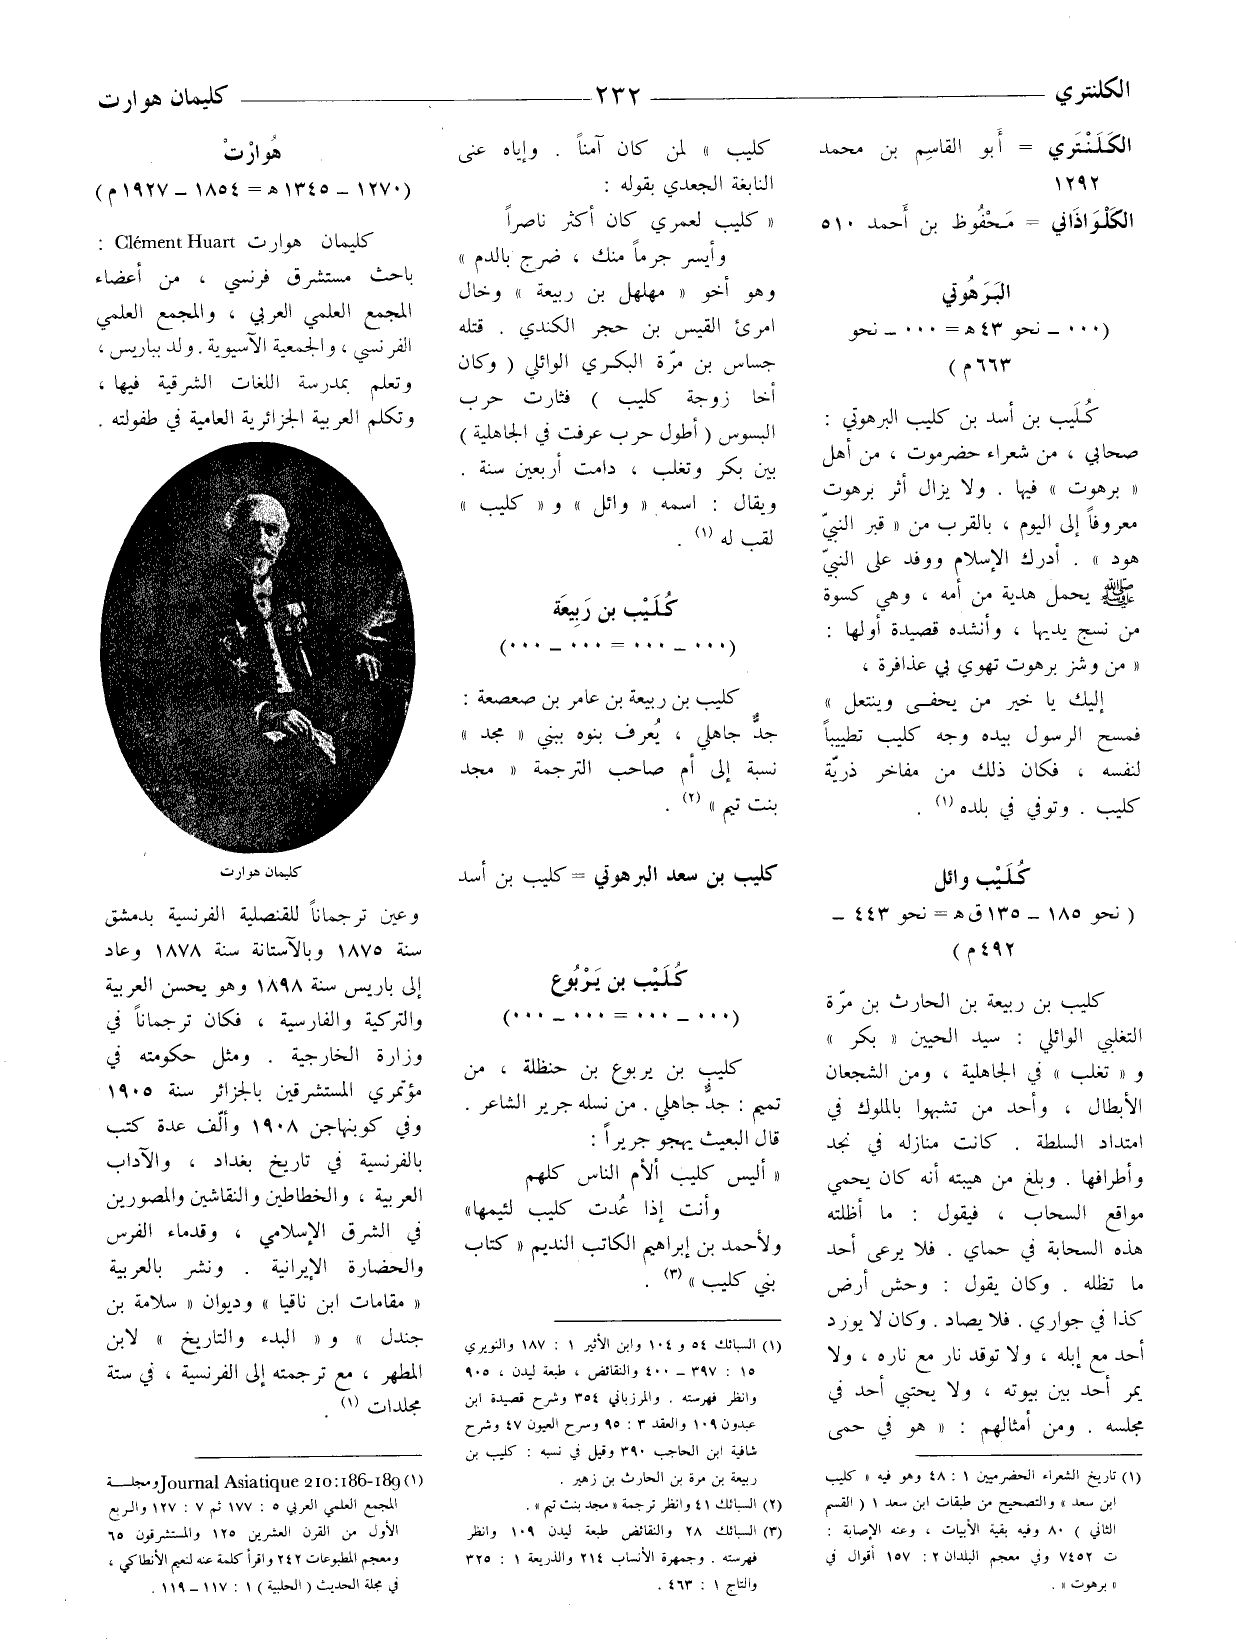 الكلنتري
٢٣٢
كليمان هوارت
الكَلَنْتَري = أَبو القاسِم بن محمد
١٢٩٢
الكَلْوَاذَاني = مَحْفُوظ بن أَحمد ٥١٠
البَرَهُوتي
(٠٠٠ ــ نحو ٤٣ هـ = ٠٠٠ ــ نحو
٦٦٣ م)
كُلَيب بن أسد بن كليب البرهوتي :
صحابي ، من شعراء حضرموت ، من أهل
« برهوت » فيها . ولا يزال أثر برهوت
معروفاً إلى اليوم ، بالقرب من « قبر النبيّ
هود » . أدرك الإسلام ووفد على النبيّ
ﷺ يحمل هدية من أمه ، وهي كسوة
من نسج يديها ، وأنشده قصيدة أولها :
« من وشز برهوت تهوي بي عذافرة ،
إليك يا خير من يحفى وينتعل »
فمسح الرسول بيده وجه كليب تطييباً
لنفسه ، فكان ذلك من مفاخر ذريّة
كليب . وتوفي في بلده (١) .
كُلَيْب وائل
( نحو ١٨٥ ــ ١٣٥ ق هـ = نحو ٤٤٣ ــ
٤٩٢ م )
كليب بن ربيعة بن الحارث بن مرّة
التغلبي الوائلي : سيد الحيين « بكر »
و « تغلب » في الجاهلية ، ومن الشجعان
الأبطال ، وأحد من تشبهوا بالملوك في
امتداد السلطة . كانت منازله في نجد
وأطرافها . وبلغ من هيبته أنه كان يحمي
مواقع السحاب ، فيقول : ما أظلته
هذه السحابة في حماي . فلا يرعى أحد
ما تظله . وكان يقول : وحش أرض
كذا في جواري . فلا يصاد . وكان لا يورد
أحد مع إبله ، ولا توقد نار مع ناره ، ولا
يمر أحد بين بيوته ، ولا يحتبي أحد في
مجلسه . ومن أمثالهم : « هو في حمى
(١) تاريخ الشعراء الحضرميين ١ : ٤٨ وهو فيه « كليب
ابن سعد » والتصحيح من طبقات ابن سعد ١ ( القسم
الثاني ) ٨٠ وفيه بقية الأبيات ، وعنه الإصابة :
ت ٧٤٥٢ وفي معجم البلدان ٢ : ١٥٧ أقوال في
« برهوت » .
كليب » لمن كان آمناً . وإياه عنى
النابغة الجعدي بقوله :
« كليب لعمري كان أكثر ناصراً
وأيسر جرماً منك ، ضرج بالدم »
وهو أخو « مهلهل بن ربيعة » وخال
امرئ القيس بن حجر الكندي . قتله
جساس بن مرّة البكري الوائلي ( وكان
أخا زوجة كليب ) فثارت حرب
البسوس ( أطول حرب عرفت في الجاهلية )
بين بكر وتغلب ، دامت أربعين سنة .
ويقال : اسمه « وائل » و « كليب »
لقب له (١) .
كُلَيْب بن رَبِيعَة
(٠٠٠ ــ ٠٠٠ = ٠٠٠ ــ ٠٠٠)
كليب بن ربيعة بن عامر بن صعصعة :
جدٌّ جاهلي ، يُعرف بنوه ببني « مجد »
نسبة إلى أم صاحب الترجمة « مجد
بنت تيم » (٢) .
كليب بن سعد البرهوتي = كليب بن أسد
كُلَيْب بن يَرْبُوع
(٠٠٠ ــ ٠٠٠ = ٠٠٠ ــ ٠٠٠)
كليب بن يربوع بن حنظلة ، من
تميم : جدٌّ جاهلي . من نسله جرير الشاعر .
قال البعيث يهجو جريراً :
« أليس كليب ألأم الناس كلهم
وأنت إذا عُدت كليب لئيمها»
ولأحمد بن إبراهيم الكاتب النديم « كتاب
بني كليب » (٣) .
(١) السبائك ٥٤ و ١٠٤ وابن الأثير ١ : ١٨٧ والنويري
١٥ : ٣٩٧ ــ ٤٠٠ والنقائض ، طبعة ليدن ، ٩٠٥
وانظر فهرسته . والمرزباني ٣٥٤ وشرح قصيدة ابن
عبدون ١٠٩ والعقد ٣ : ٩٥ وسرح العيون ٤٧ وشرح
شافية ابن الحاجب ٣٩٠ وقيل في نسبه : كليب بن
ربيعة بن مرة بن الحارث بن زهير .
(٢) السبائك ٤١ وانظر ترجمة « مجد بنت تيم » .
(٣) السبائك ٢٨ والنقائض طبعة ليدن ١٠٩ وانظر
فهرسته . وجمهرة الأنساب ٢١٤ والذريعة ١ : ٣٢٥
والتاج ١ : ٤٦٣ .
هُوارْتْ
(١٢٧٠ ــ ١٣٤٥ هـ = ١٨٥٤ ــ ١٩٢٧ م)
كليمان هوارت Clément Huart :
باحث مستشرق فرنسي ، من أعضاء
المجمع العلمي العربي ، والمجمع العلمي
الفرنسي ، والجمعية الآسيوية . ولد بباريس ،
وتعلم بمدرسة اللغات الشرقية فيها ،
وتكلم العربية الجزائرية العامية في طفولته .
كليمان هوارت
وعين ترجماناً للقنصلية الفرنسية بدمشق
سنة ١٨٧٥ وبالآستانة سنة ١٨٧٨ وعاد
إلى باريس سنة ١٨٩٨ وهو يحسن العربية
والتركية والفارسية ، فكان ترجماناً في
وزارة الخارجية . ومثل حكومته في
مؤتمري المستشرقين بالجزائر سنة ١٩٠٥
وفي كوبنهاجن ١٩٠٨ وألّف عدة كتب
بالفرنسية في تاريخ بغداد ، والآداب
العربية ، والخطاطين والنقاشين والمصورين
في الشرق الإسلامي ، وقدماء الفرس
والحضارة الإيرانية . ونشر بالعربية
« مقامات ابن ناقيا » وديوان « سلامة بن
جندل » و « البدء والتاريخ » لابن
المطهر ، مع ترجمته إلى الفرنسية ، في ستة
مجلدات (١) .
(١) Journal Asiatique 210:186-189 ومجلـــة
المجمع العلمي العربي ٥ : ١٧٧ ثم ٧ : ١٢٧ والربع
الأول من القرن العشرين ١٢٥ والمستشرقون ٦٥
ومعجم المطبوعات ٢٤٢ واقرأ كلمة عنه لنعيم الأنطاكي ،
في مجلة الحديث ( الحلبية ) ١ : ١١٧ ــ ١١٩ .